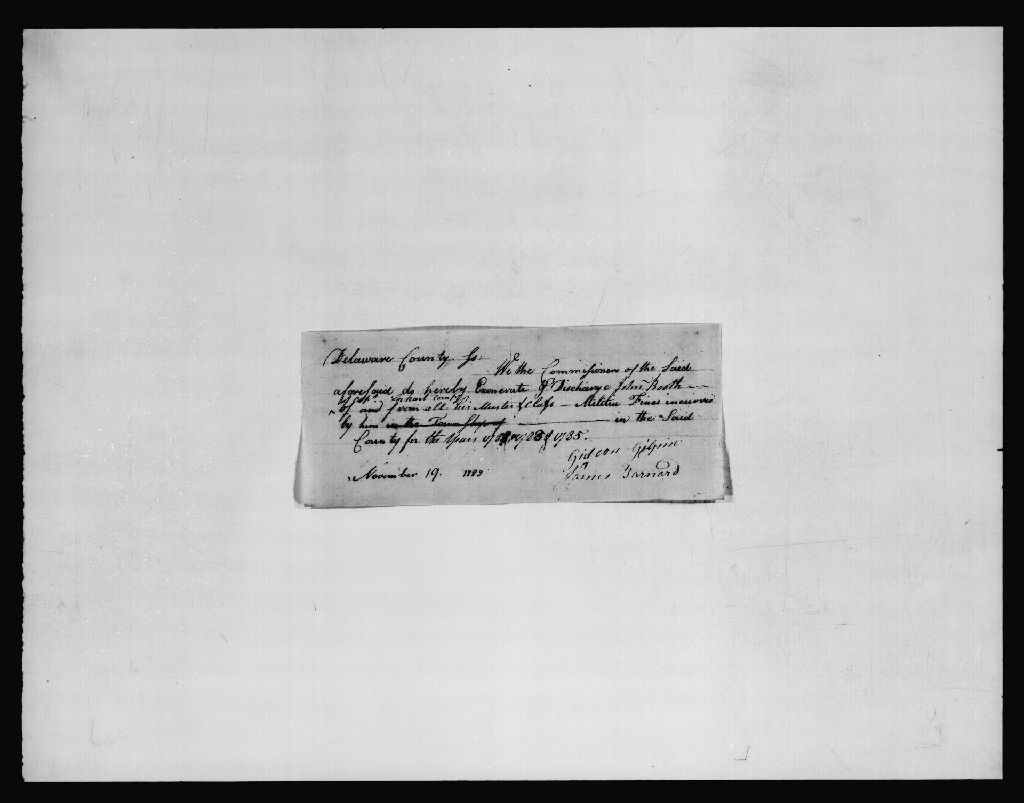 Delaware County Ss.
We the Commissioners of the Said
aforesaid do hereby Exonerate & Discharge John Booth
of and from all his Muster & Class - Militia Fines incurred
by him in the Township of in the Said
County for the Years of & 1785.
Gideon Gilpin
November 19. 1789 James Barnard